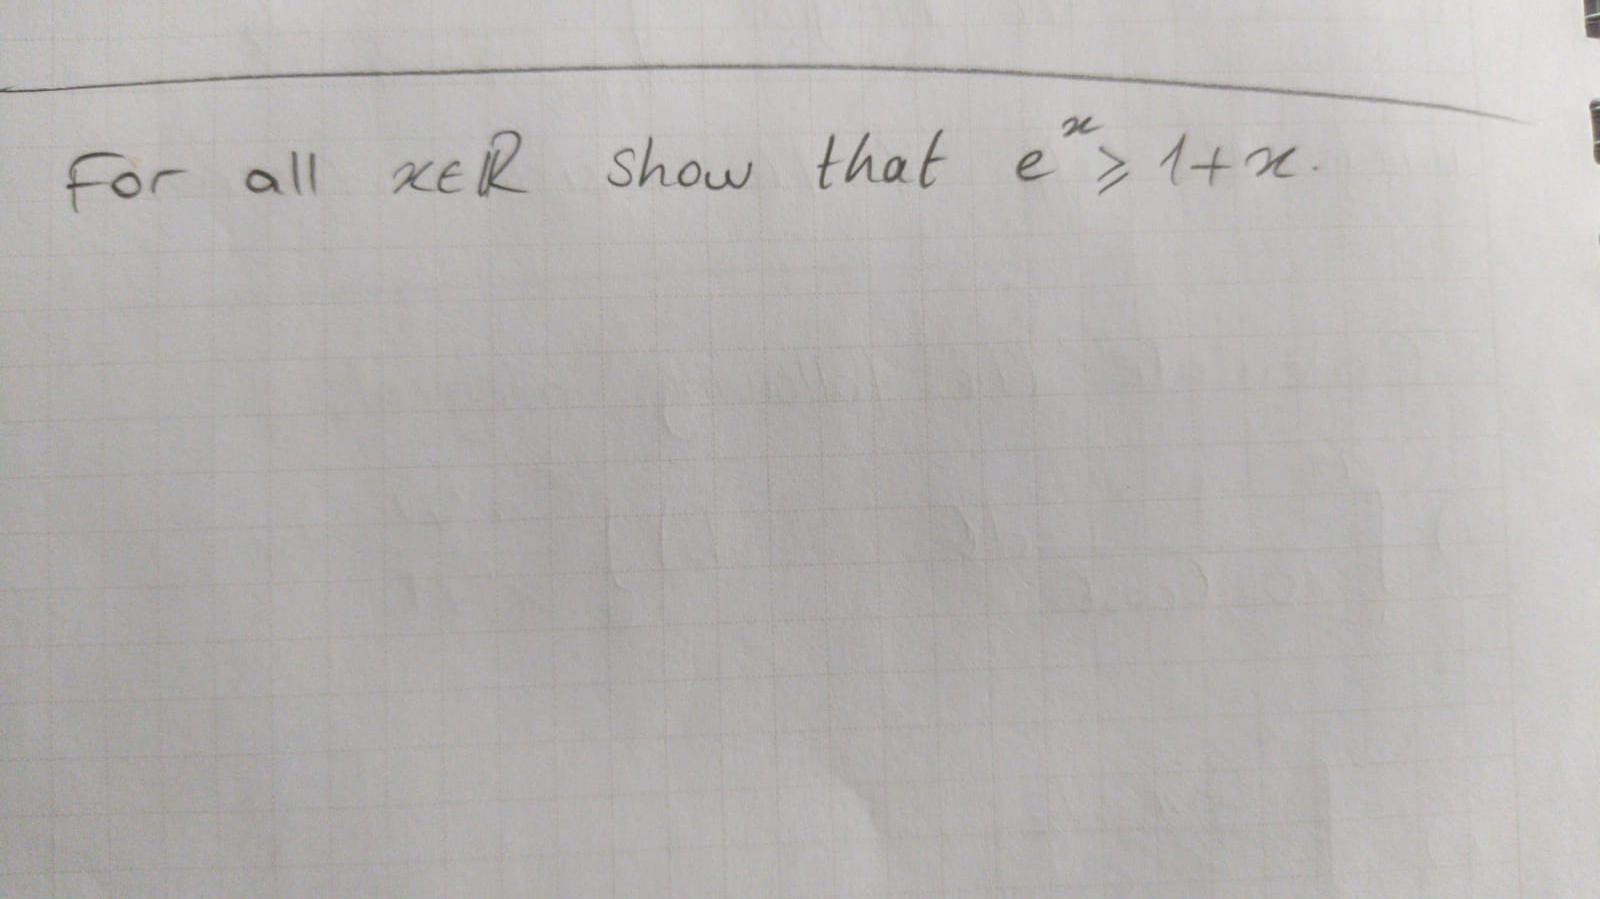 For all x∈ℝ show that eˣ ⩾ 1+x.